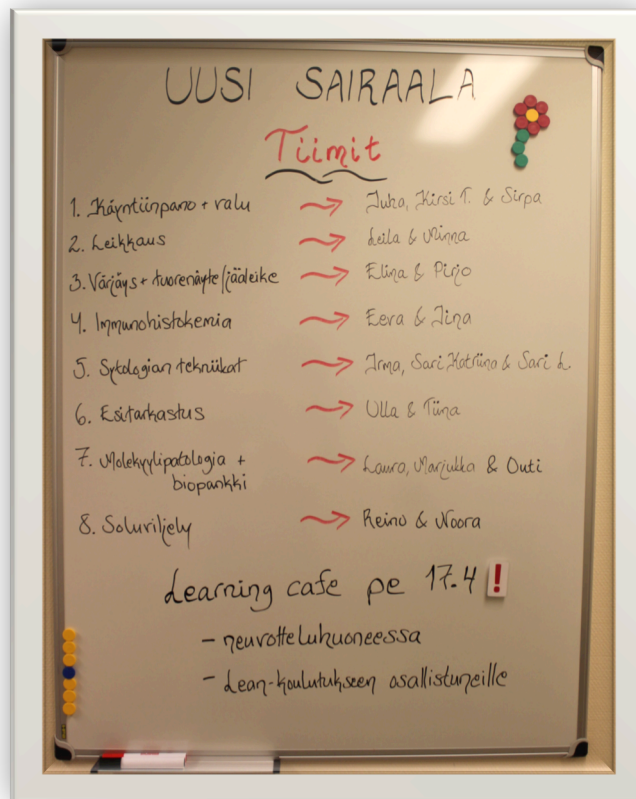 UUSI SAIRAALA
Tiimit
1. Käyntiinpano + valu → Juha, Kirsi T. & Sirpa
2. Leikkaus → Leila & Minna
3. Värjäys + tuorenäyte/jääleike → Elina & Pirjo
4. Immunohistokemia → Eeva & Jina
5. Sytologian tekniikat → Irma, Sari, Katriina & Sari L.
6. Esitarkastus → Ulla & Tiina
7. Molekyylipatologia + → Laura, Marjukka & Outi
biopankki
8. Soluviljely → Reino & Noora
Learning cafe pe 17.4 !
- neuvotteluhuoneessa
- Lean-koulutukseen osallistuneille